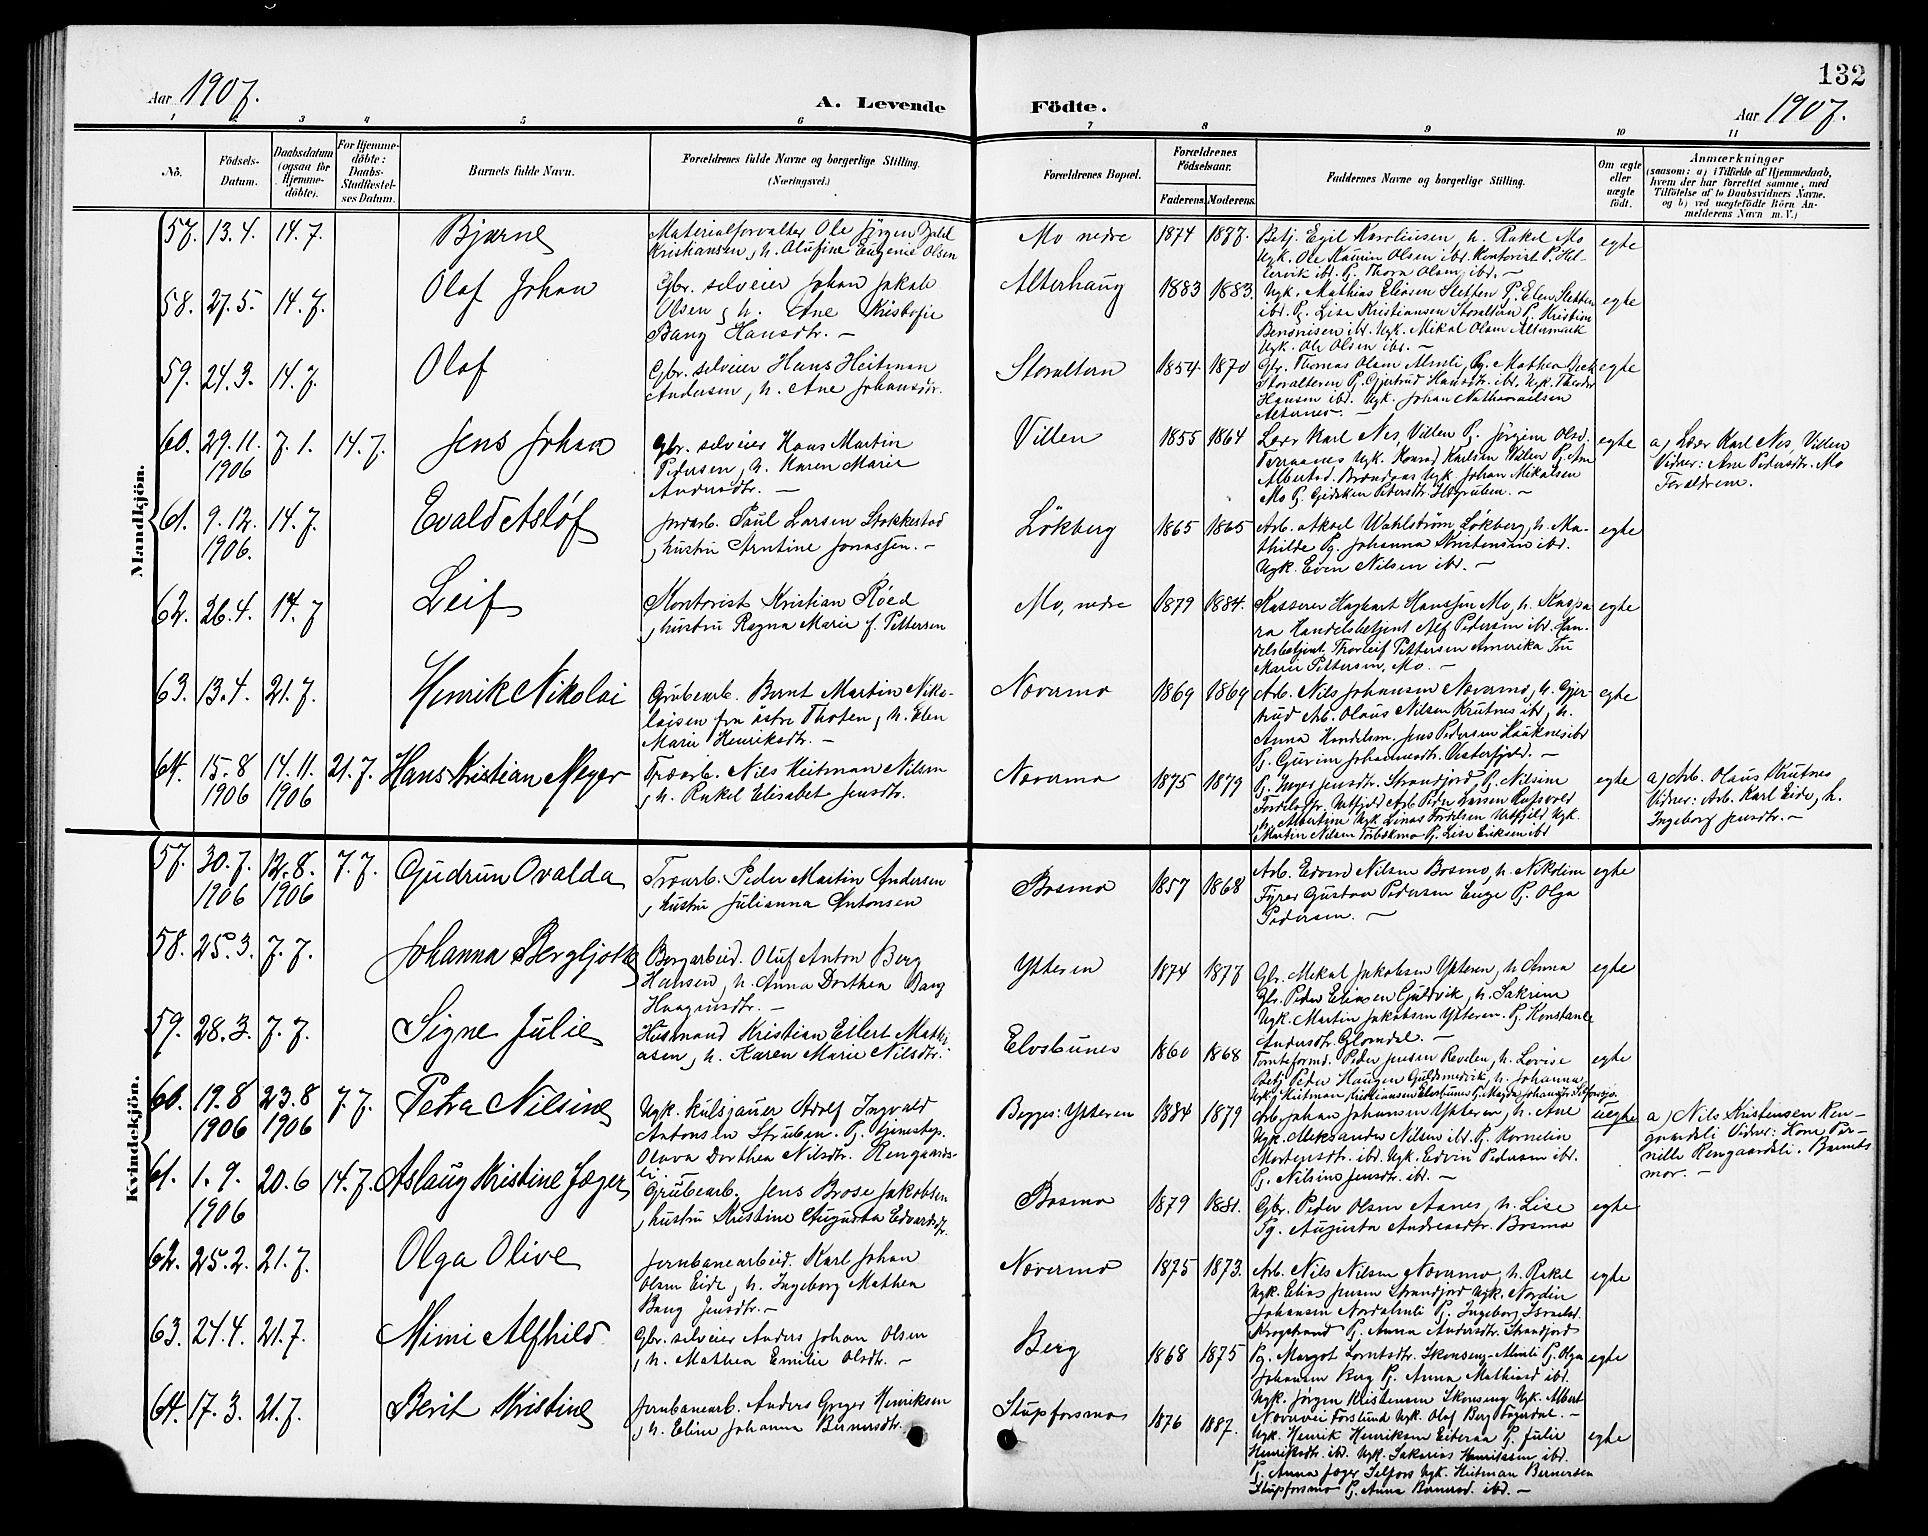 132
Aar 1907.
A. Levende
Födte.
Aar 1907.
1 2 3 4 5 6 7 8 9 10 11
No.
Födsels-
Datum.
Daabsdatum
(ogsaa for
Hjemme-
döbte).
For Hjemme-
döbte:
Daabs-
Stadfæstel-
ses Datum.
Barnets fulde Navn.
Forældrenes fulde Navne og borgerlige Stilling.
(Næringsvei.)
Forældrenes Bopæl.
Forældrenes
Födselsaar.
Faderens. Moderens.
Faddernes Navne og borgerlige Stilling.
Om ægte
eller
uægte
födt.
Anmærkninger
(saasom: a) i Tilfælde af Hjemmedaab,
hvem der har forrettet samme, med
Tilföielse af to Daabsvidners Navne,
og b) ved uægtefödte Börn An-
melderens Navn m. V.)
Mandkjön.
57. 13.4. 14.7. Bjarne
Materialforvalter Ole Jörgen
Kristiansen, h. Olufine Eugenie Olsen
Mo nedre 1874 1877.
Betj. Egil Karolinsen, h. Rakel Mo
Ugk. Ole Kaurin Olsen ibd. Kontorist P. Hel-
lervik ibd. Pg. Thora Olsen ibd. —
egte
58. 27.5. 14.7. Olaf Johan
Gbr. selveier Johan Jakob
Olsen, h. Ane Kristofie
Bang Hansdtr. —
Alterhaug 1883 1883.
Ugk. Mathias Eliasen Sletten P. Elen Sletten
ibd. Pg. Lise Kristiansen Storaltern Pg. Kristine
Bendvisen ibd. Ugk. Mikal Olsen Altermark
Ugk. Ole Olsen ibd. —
egte
59. 24.3. 14.7. Olaf
Gbr. selveier Hans Heitman
Andersen, h. Ane Johansdtr.
Storaltern 1854 1870
Gbr. Thomas Olsen Almli, Pg. Mathea
Storalteren P. Gjertrud Hansdtr. ibd. Ugk. Theodor
Hansen ibd. Ugk. Johan Nathanaelsen
Alternes. —
egte
60. 29.11. 1906 7.1. 14.7. Jens Johan
Gbr. selveier Hans Martin
Pedersen, h. Karen Marie
Andersdtr. —
Villen 1855 1864
Lær. Karl Nes, Villen Pg. Jörgine Olsd.
Terraanes Ugk. Konrad Karlsen Villen Pg. Ane
Albertsd. Brændaas Ugk. Johan Mikalsen
Mo Pg. Gidsken Pedersdtr. Helgruben. —
egte
a) Lær Karl Nes, Villen
Vidner: Ane Pedersdtr. Mo
Foraldrene.
61. 9.12. 1906. 14.7. Evald Asløf
Jordarb. Paul Larsen Stokkestad
, hustru Arntine Jonassen. —
Lökberg 1865 1865
Arb. Aksel Wahlström Lökberg, h. Ma-
thilde Pg. Johanna Kristensen ibd.
Ugk. Even Nilsen ibd. —
egte
62. 26.4. 14.7 Leif
Kontorist Kristian Røed
, hustru Ragna Marie f. Pettersen
Mo, nedre 1879 1884.
Kasserer Hagbart Hanssen Mo, h. Kaspa
ra Handelsbetjent Alf Pedersen ibd. Han-
delsbetjent Thorleif Pettersen Amerika Fru
Marie Pettersen, Mo. —
egte
63. 13.4. 21.7. Henrik Nikolai
Grubearb. Bernt Martin Niko-
laisen fra östre Thoten, h. Elen
Marie Henriksdtr. —
Nævermo 1869 1869
Arb. Nils Johansen Nævermo, h. Gjer-
trud Arb. Olaus Nilsen Krutnes ibd, h.
Anna Handelsm. Jens Pedersen Haaknes ibd
Pg. Gurine Johannesdtr. Østerfjeld. —
egte
64. 15.8 1906 14.11. 1906 21.7. Hans Kristian Meyer
Træarb. Nils Heitman Nilsen
, h. Rakel Elisabet Jensdtr.
Nævermo 1875 1879
Pg. Inger Jensdtr. Strandjord Pg. Nilsine
Fordelsdtr. Urtfjeld Arb. Peder Larsen Rufsvold
, h. Albertine Ugk. Linas Fordelsen Urtfjeld Ugk.
Martin Nilsen Torbekmo Pg. Lise Eriksen ibd
egte
a) Arb. Olaus Krutnes
Vidner: Arb. Karl Eide, h.
Ingeborg Jensdtr. —
Kvindekjön.
57. 30.7. 1906 12.8. 1906 7.7. Gudrun Ovalda
Træarb. Peder Martin Andersen
, hustru Julianna Antonsen
Bosmo 1857 1868
Arb. Edvard Nilsen Bosmo, h. Nikoline
Fyrer Gustav Pedersen Enge Pg. Olga
Pedersen. —
egte
58. 25.3. 7.7. Johanna Bergljot
Bergarbeid. Oluf Anton Berg
Hansen, h. Anna Dorthea Bang
Haagensdtr. —
Ytteren 1874 1877
Gbr. Mikal Jakobsen Ytteren, h. Anna
Gbr. Peder Eliasen Guldvik, h. Sakrine
Ugk. Martin Jakobsen Ytteren. Pg. Konstanse
Andersdtr. Glomdal. —
egte
59. 28.3. 7.7. Signe Julie
Husmand Kristian Eilert Mathi
asen, h. Karen Marie Nilsdtr.
Elvsbunes 1860 1868
Tomteformd. Peder Jensen Revelen, h. Lovise
Betj. Peder Haugen Guldsmedvik, h. Johanna
Ugk. Heitman Kristiansen Elvsbunes Pg. Magda Johansdtr. Selfors
egte
60. 19.8 1906 23.8 1906 7.7. Petra Nilsine
Ugk. kulsjauer Adolf Ingvald
Antonsen Struben. Pg. tjenestep.
Olava Dorthea Nilsdtr. Rengaards-
li.
Bygges: Ytteren 1884 1879
Arb. Johan Johansen Ytteren, h. Ane
Ugk. Aleksander Nilsen ibd. Pg. Kornelia
Mortensdtr. ibd. Ugk. Edvin Pedersen ibd.
Pg. Nilsine Jensdtr. ibd. —
uegte
a) Nils Kristensen Ren-
gaardsli Vidner: Kone Per-
nille Rengaardsli. Barnets
mor. —
61. 1.9. 1906 20.6 14.7. Aslaug Kristine Jæger
Grubearb. Jens Brose Jakobsen
, hustru Kristine Augusta Edvardsdtr.
Bosmo 1879 1881.
Gbr. Peder Olsen Aanes, h. Lise
Pg. Augusta Andreasdtr. Bosmo
egte
62. 25.2. 21.7. Olga Olive
Jernbanearbeid. Karl Johan
Olsen Eide, h. Ingeborg Mathea
Bang Jensdtr. —
Nævermo 1875 1873.
Arb. Nils Nilsen Nævermo, h. Rakel
Ugk. Elias Jensen Strandjord Ugk. Nordin
Johansen Nordalmli Pg. Ingeborg Israelsd.
Krogstrand Pg. Anna Andersdtr. Strandjord
egte
63. 24.4. 21.7. Mimi Alfhild
Gbr. selveier Anders Johan Olsen
, h. Mathea Emilie Olsdtr. —
Berg 1868 1875
Pg. Margot Lorntsdtr. Skonseng-Almli Pg. Olga
Johansen Berg Pg. Anna Mathiasd ibd.
Ugk. Jörgen Kristensen Skonseng Ugk. Albert
Nævervei Forslund Ugk. Olaf Berg Fagerdal. —
egte
64. 17.3. 21.7. Berit Kristine
Jernbanearb. Anders Greger Henriksen
, h. Eline Johanna Bernersdtr.
Stupforsmo 1876 1887.
Ugk. Henrik Henriksen Eiteraa Pg. Julie
Henriksdtr. ibd. Ugk. Sakarias Henriksen ibd.
Pg. Anna Jæger Selfors Ugk. Heitman Bernersen
Stupforsmo Pg. Anna Bernersd. ibd. —
egte